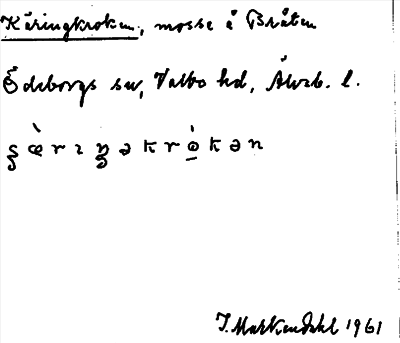 Käringkroken, mosse å Bråten
Ödeborgs sn, Valbo hd, Älvsb. l.
I. Markendahl 1961